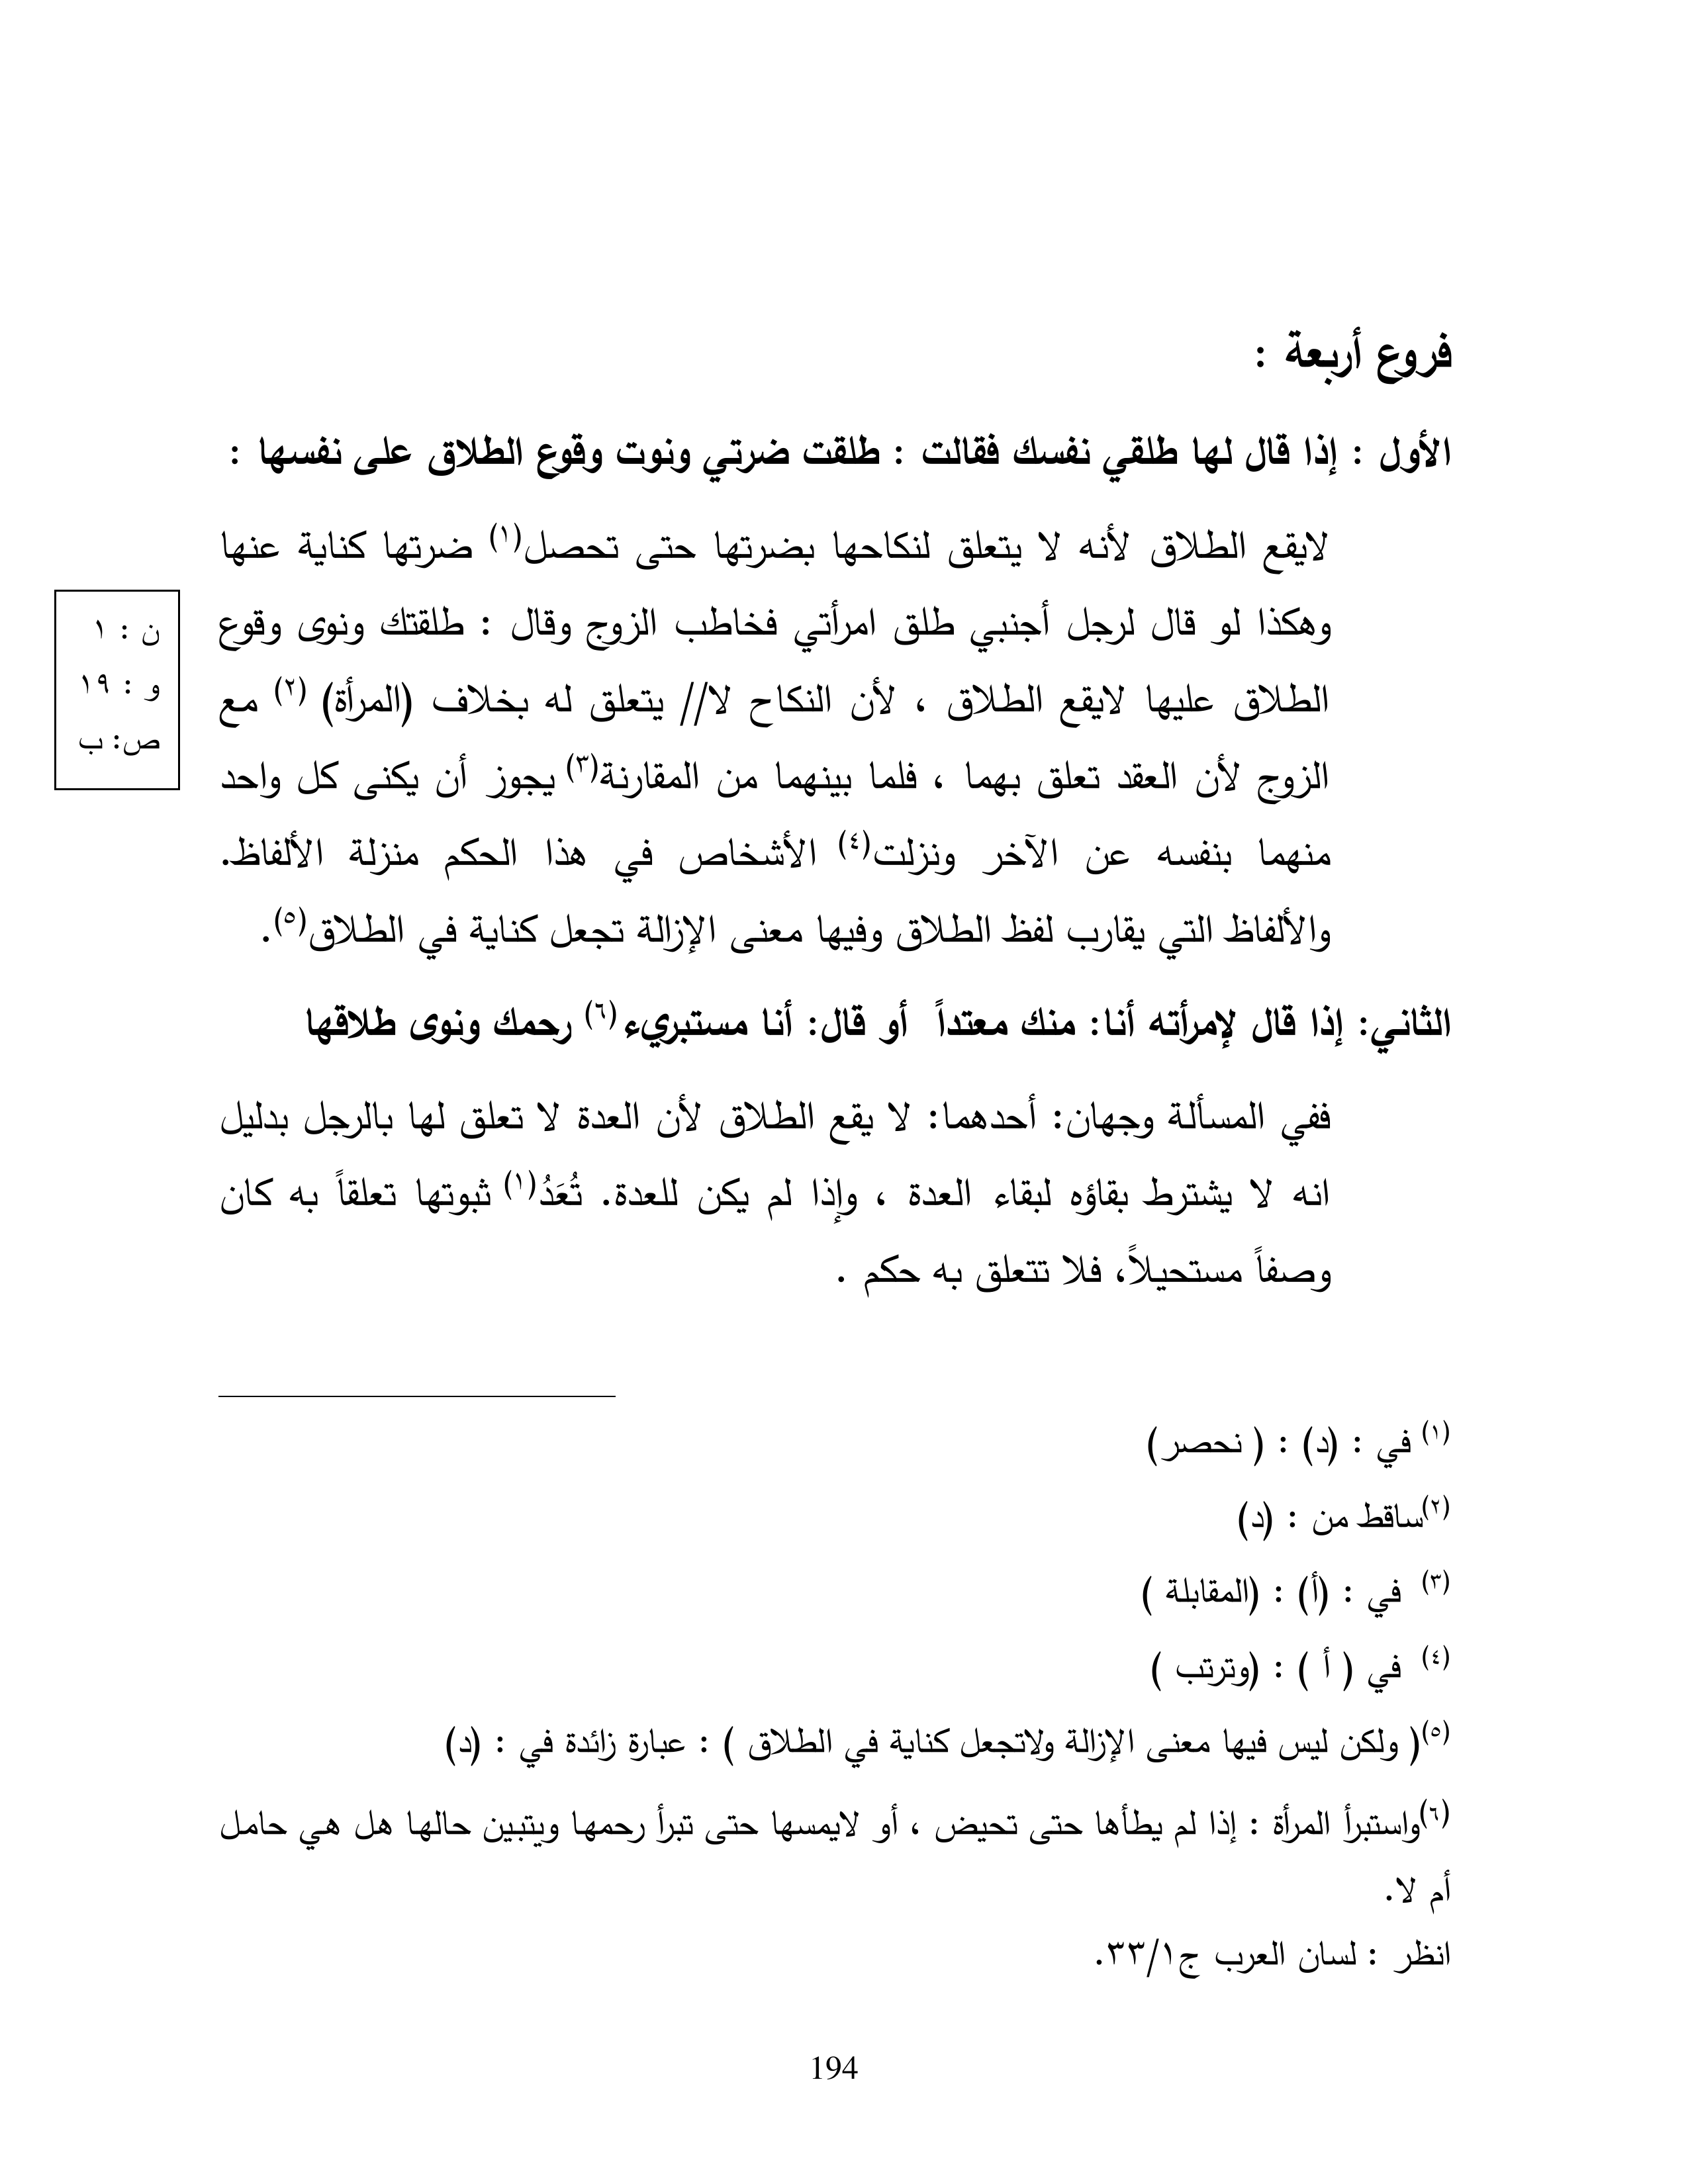 فروع أربعة :
الأول : إذا قال لها طلقي نفسك فقالت : طلقت ضرتي ونوت وقوع الطلاق على نفسها :
لايقع الطلاق لأنه لا يتعلق لنكاحها بضرتها حتى تحصل(١) ضرتها كناية عنها
وهكذا لو قال لرجل أجنبي طلق امرأتي فخاطب الزوج وقال : طلقتك ونوى وقوع
الطلاق عليها لايقع الطلاق ، لأن النكاح لا// يتعلق له بخلاف (المرأة) (٢) مع
الزوج لأن العقد تعلق بهما ، فلما بينهما من المقارنة(٣) يجوز أن يكنى كل واحد
منهما بنفسه عن الآخر ونزلت(٤) الأشخاص في هذا الحكم منزلة الألفاظ.
والألفاظ التي يقارب لفظ الطلاق وفيها معنى الإزالة تجعل كناية في الطلاق(٥).
ن : ١
و : ١٩
ص: ب
الثاني: إذا قال لإمرأته أنا: منك معتداً أو قال: أنا مستبريء(٦) رحمك ونوى طلاقها
ففي المسألة وجهان: أحدهما: لا يقع الطلاق لأن العدة لا تعلق لها بالرجل بدليل
انه لا يشترط بقاؤه لبقاء العدة ، وإذا لم يكن للعدة. تُعَدُ(١) ثبوتها تعلقاً به كان
وصفاً مستحيلاً، فلا تتعلق به حكم .
(١) في : (د) : ( نحصر)
(٢)ساقط من : (د)
(٣) في : (أ) : (المقابلة )
(٤) في ( أ ) : (وترتب )
(٥)( ولكن ليس فيها معنى الإزالة ولاتجعل كناية في الطلاق ) : عبارة زائدة في : (د)
(٦)واستبرأ المرأة : إذا لم يطأها حتى تحيض ، أو لايمسها حتى تبرأ رحمها ويتبين حالها هل هي حامل
أم لا.
انظر : لسان العرب ج٣٣/١.
194